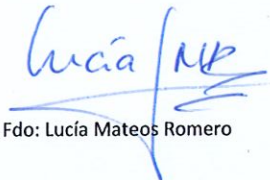 Lucía MR
Fdo: Lucía Mateos Romero